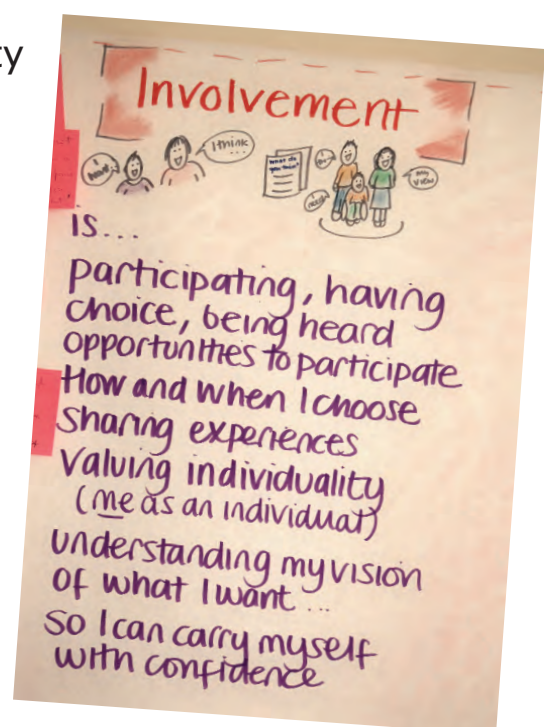 ty
Involvement
I think
...
What do
you think?
my
view
I need
is...
participating, having
choice, being heard
opportunities to participate
How and when I choose
Sharing experiences
Valuing individuality
(me as an individual)
understanding my vision
of what I want...
so I can carry myself
with confidence